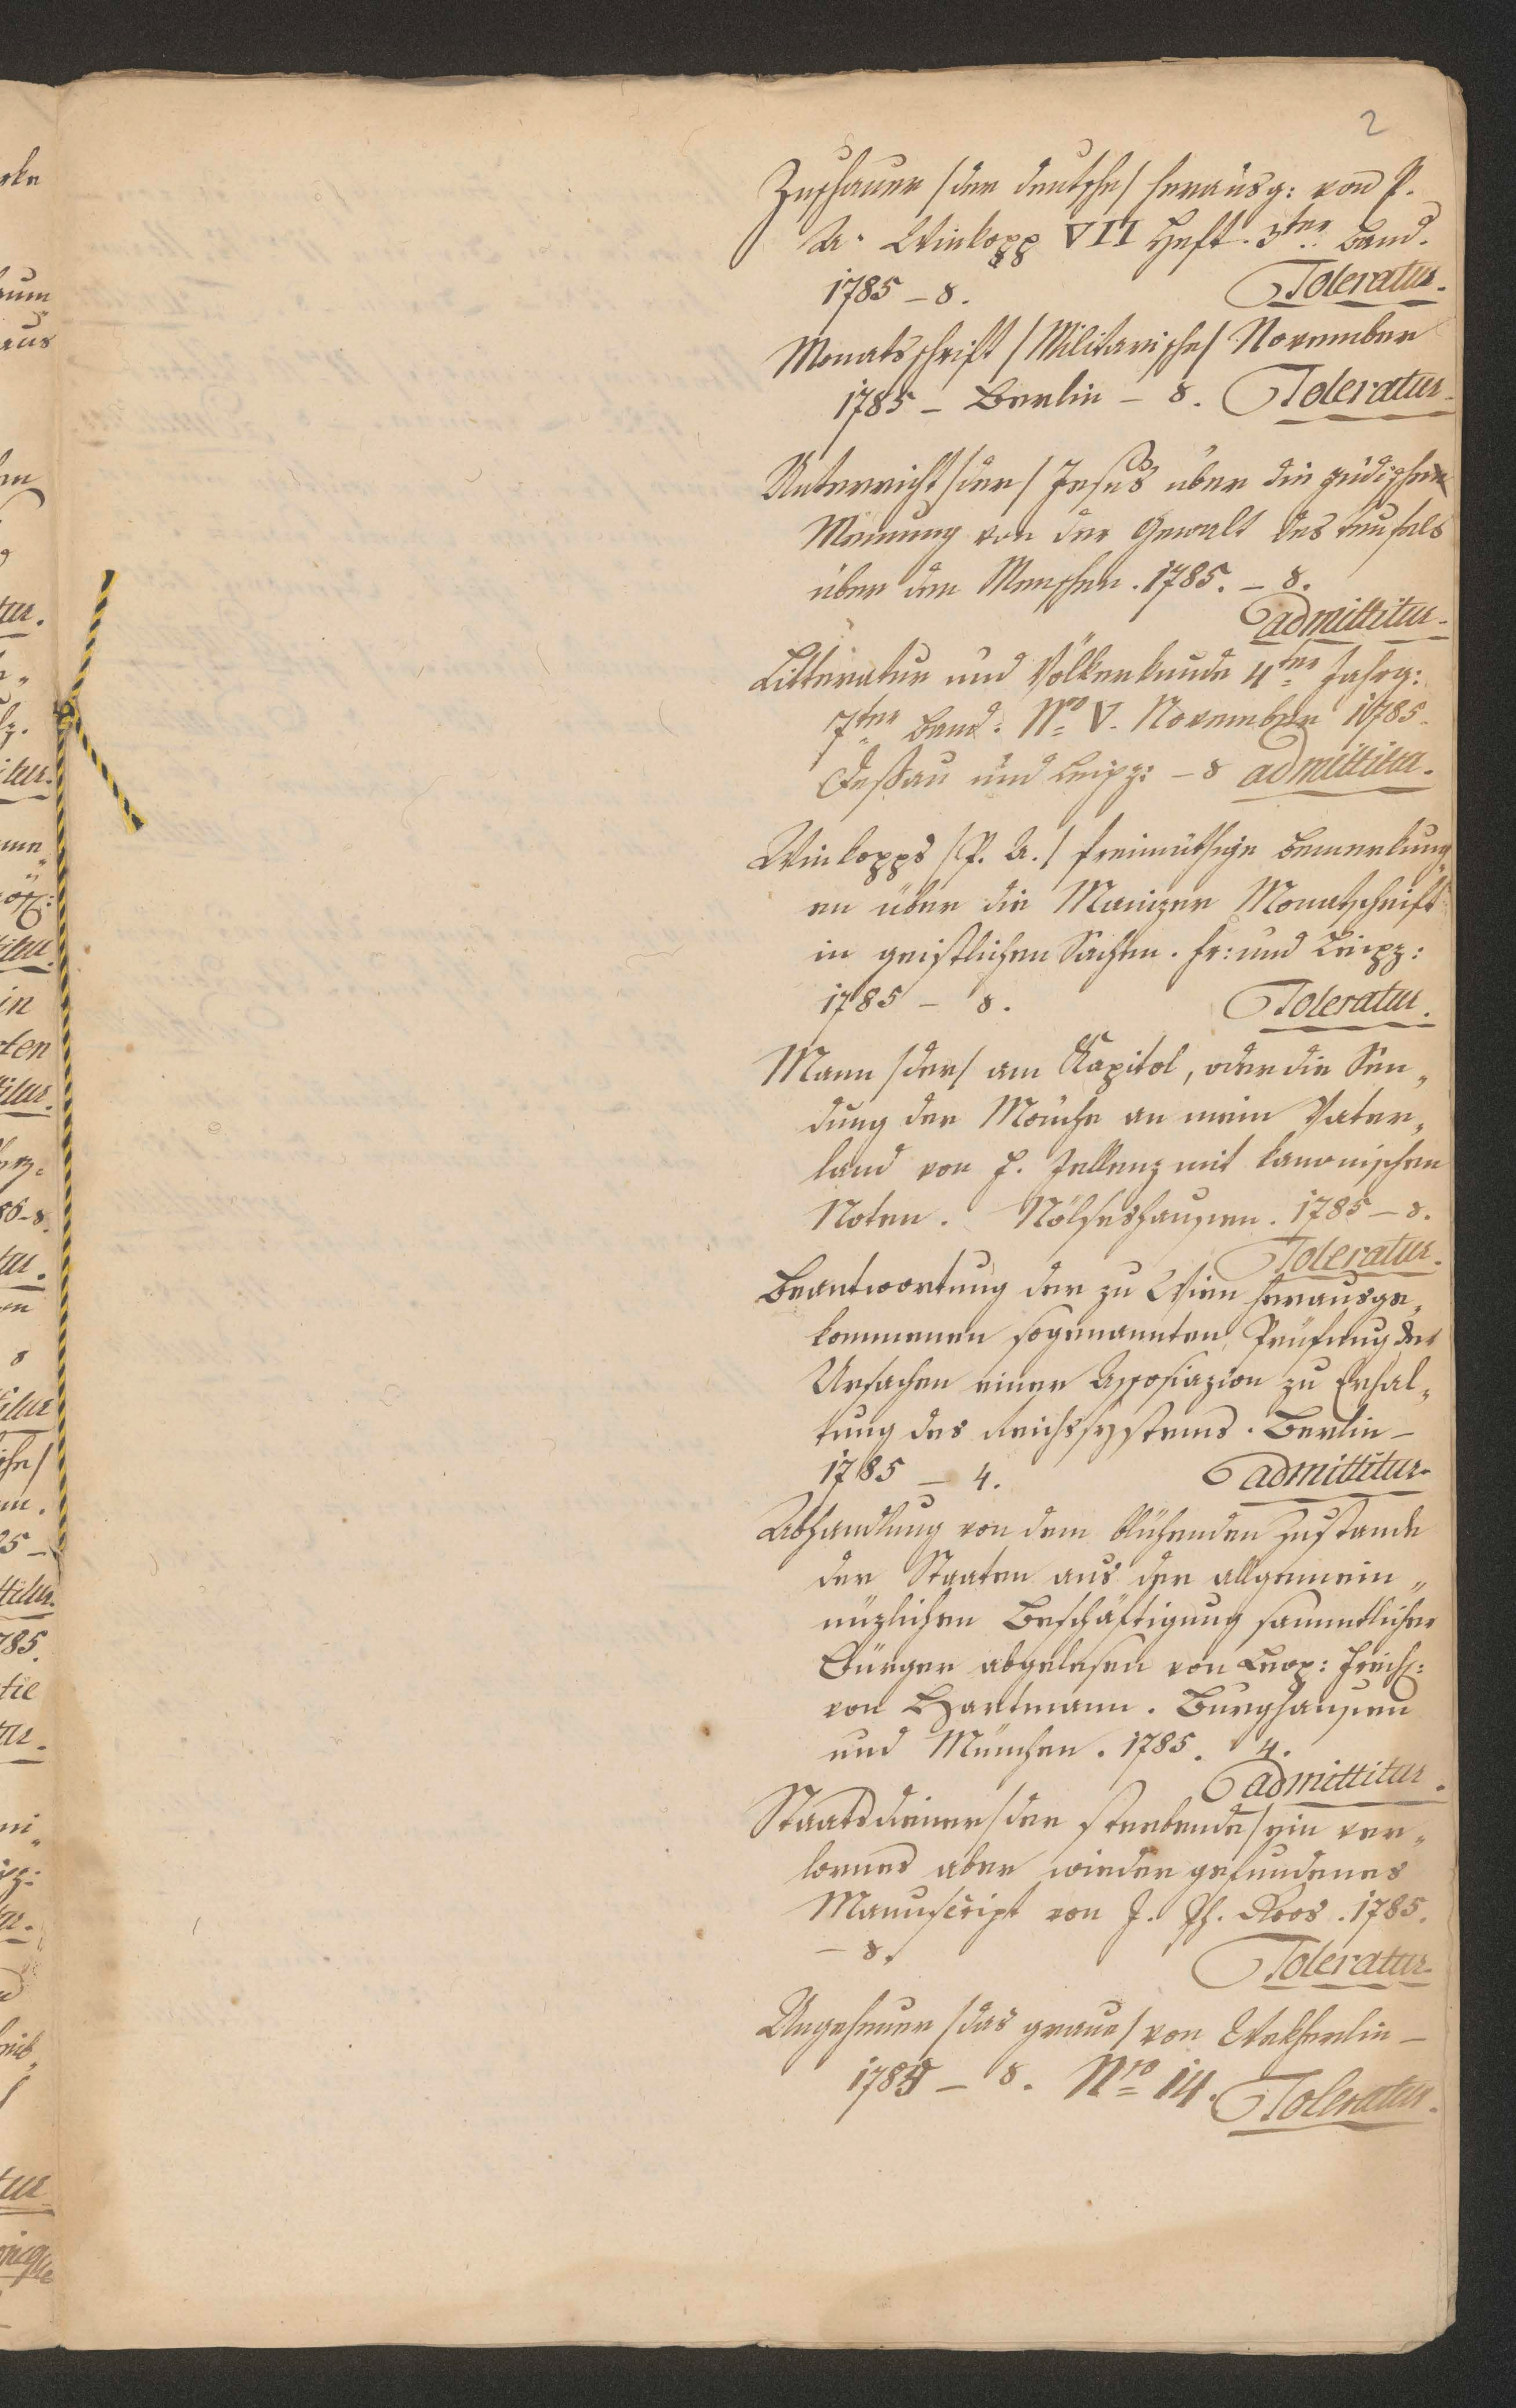 2
Zuschauer /der deutsche/ herausg: von P.
A. Winkopp VII Heft. 3ter Band.
1785 – 8. Toleratur.
Monatsschrift /Militarische/ November
1785 – Berlin – 8. Toleratur.
Unterricht /der/ Jesus über die jüdische
Meinung von der Gewalt des Teufels
über den Menschen. 1785. – 8.
admittitur.
Litteratur und Völkerkunde 4ter Jahrg:
7ter Band. Nro V. November 1785.
Deßau und Leipz: – 8 admittitur.
Winkopps /P. A./ freimüthige Bemerkung„
en über die Mainzer Monatschrift
in geistlichen Sachen. Fr: und Leipz:
1785 – 8. Toleratur.
Mann /der/ am Kapitol, oder die Sen„
dung der Mönche an mein Vater„
land von J. Jellenz mit kanonischen
Noten. 1785 – 8.
Toleratur.
Beantwortung der zu Wien herausge„
kommenen sogenannten Prüfung der
Ursachen einer Assosiazion zu Erhal„
tung des Reichssystems. Berlin –
1785 – 4. admittitur.
Abhandlung von dem blühenden Zustande
der Staaten aus der allgemein„
nüzlichen Beschäftigung sammtlicher
Bürger abgelesen von Leop: Freih:
von Hartmann. Burghausen
und München. 1785. 4.
admittitur.
Staatsdiener /der sterbende/ ein ver„
lornes aber wieder gefundenes
Manuscript von J. Ph. Roos. 1785.
– 8. Toleratur.
Ungeheuer /das graue/ von Wekherlin –
1785 – 8. Nro 14. Toleratur.